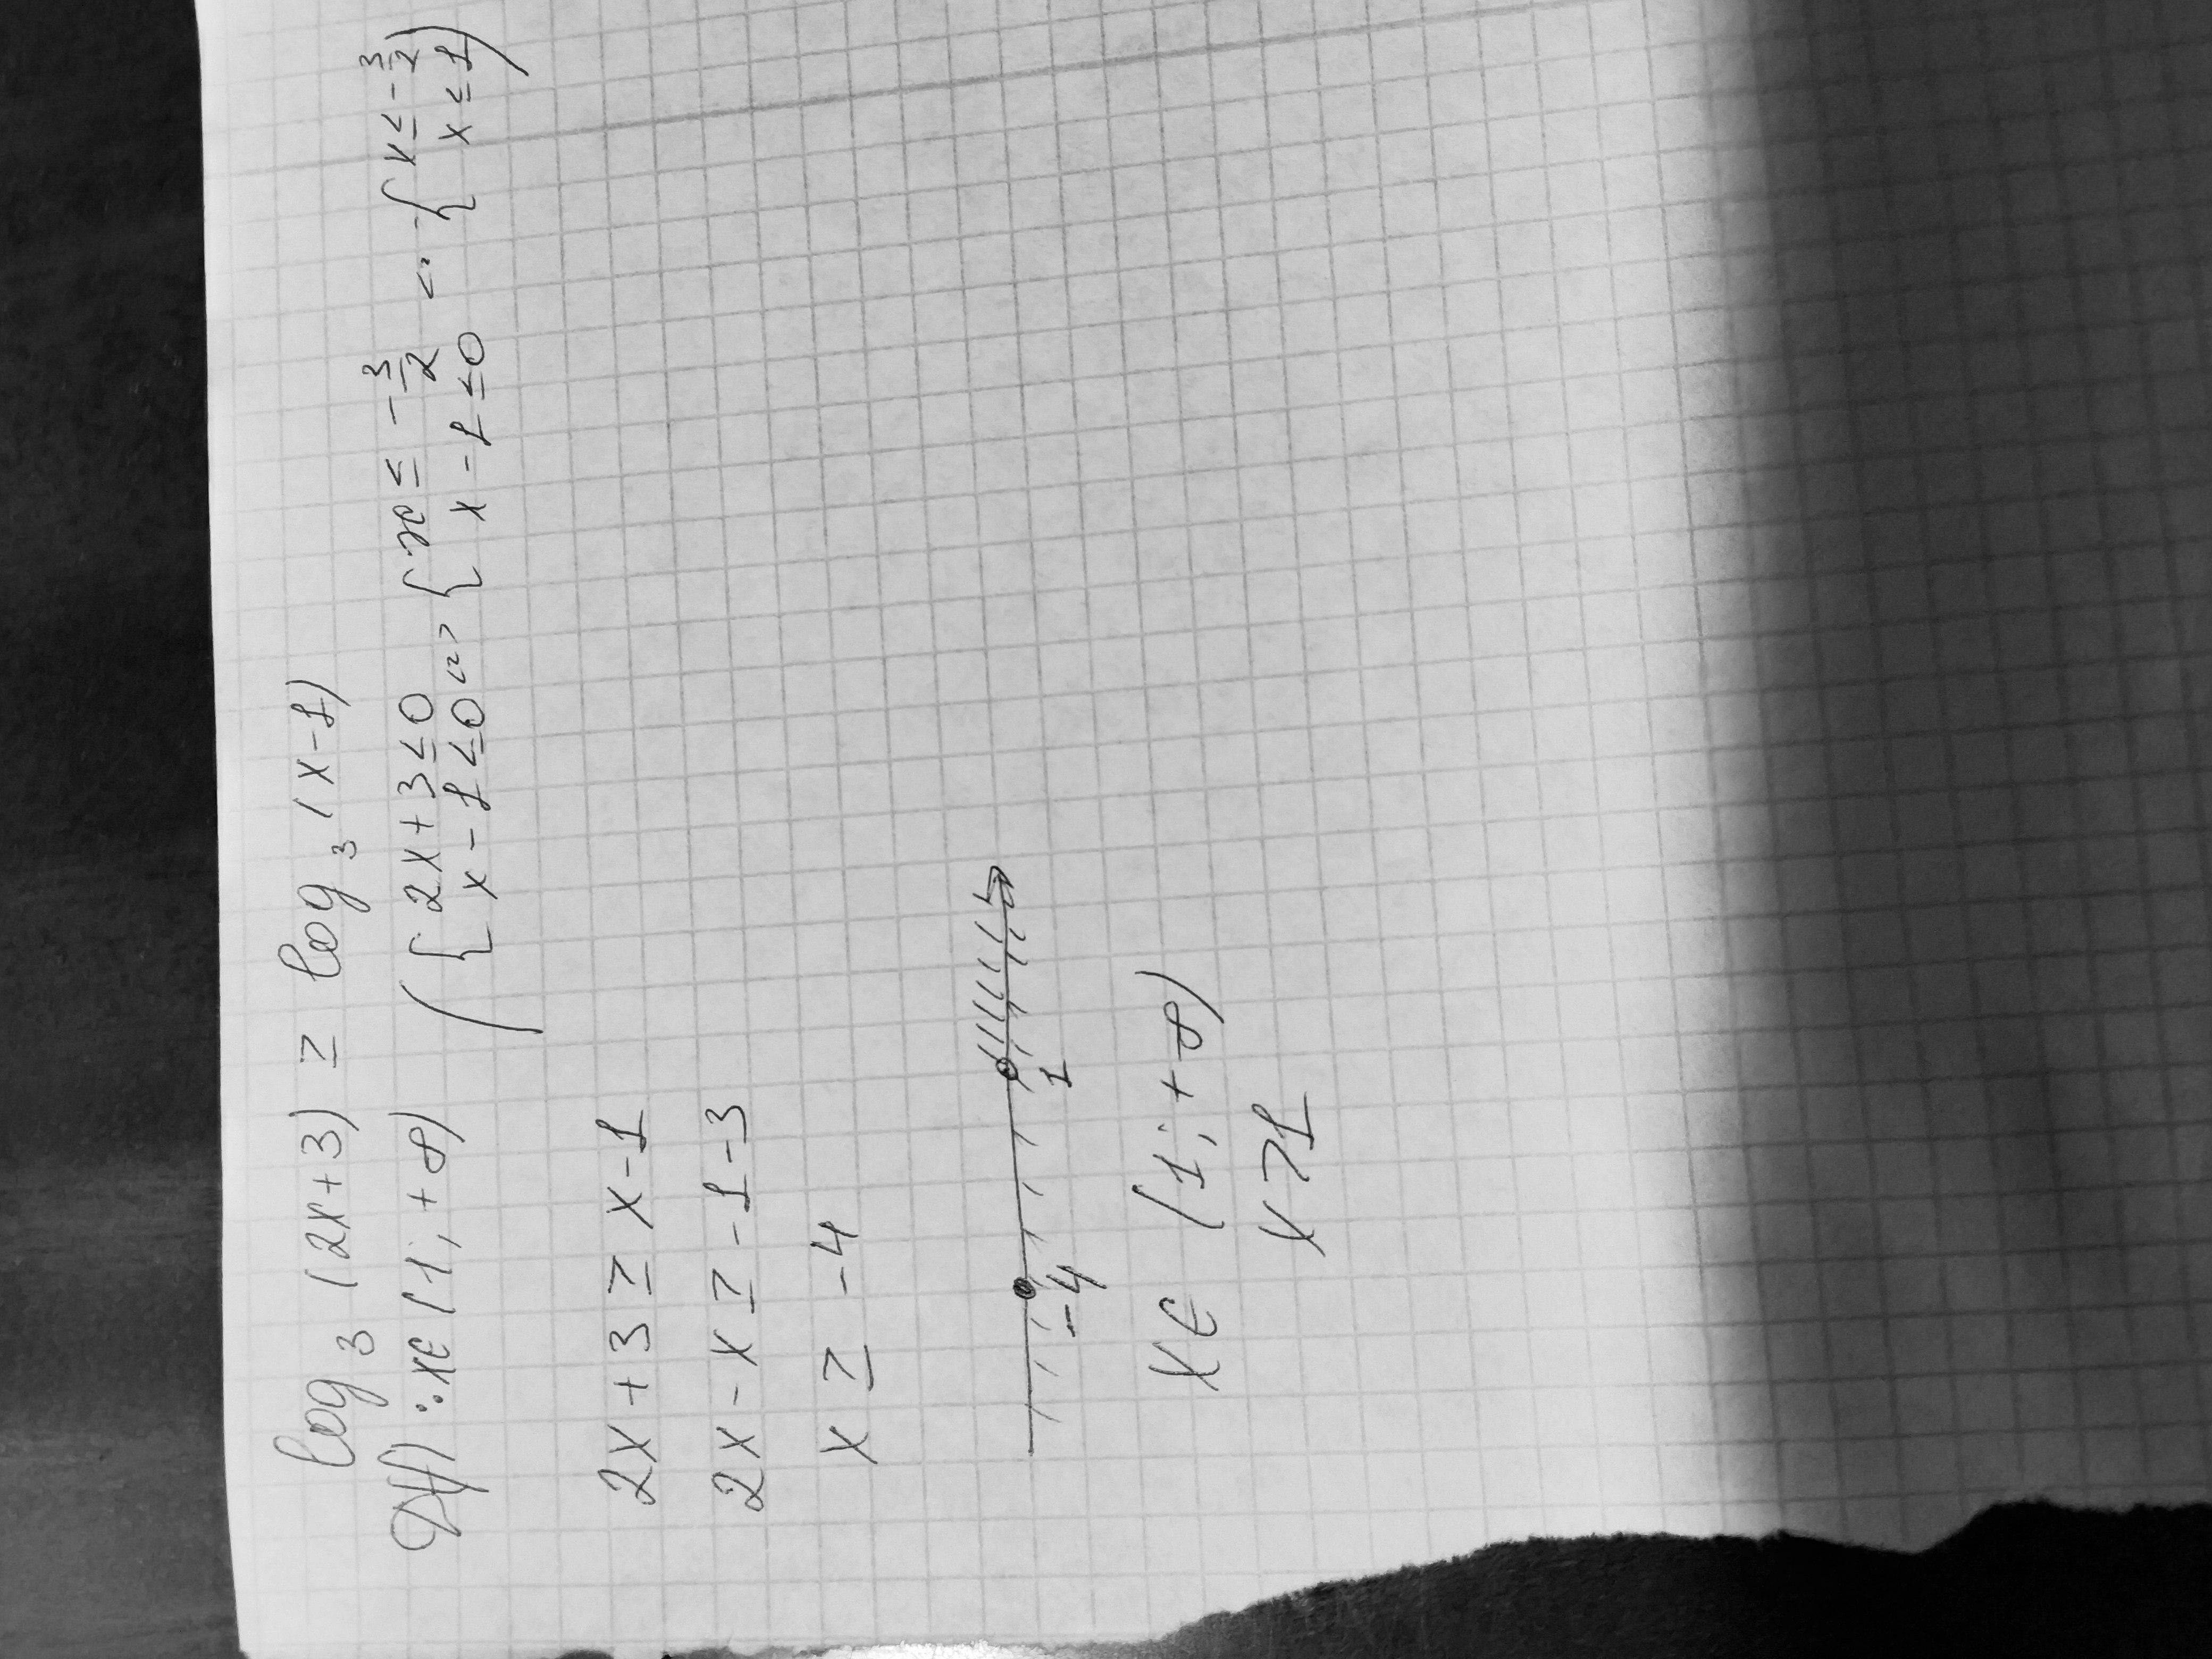 log₃ (2x+3) ≥ log₃ (x-1)
D(f): x∈(1; +∞) ( { 2x+3≤0 <=> { x≤ -3/2 <=> { x≤-3/2
x-1≤0 { x-1≤0 { x≤1 )
2x+3 ≥ x-1
2x-x ≥ -1-3
x ≥ -4
-4 1
x∈ (1; +∞)
x>1